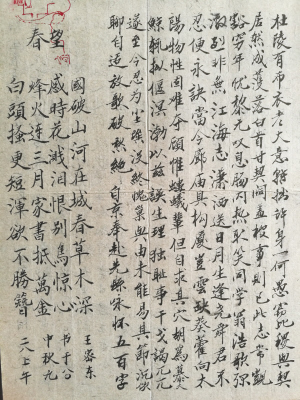 杜陵有布衣老大意轉拙許身一何愚竊比稷與契
居然成濩落白首甘契闊蓋棺事則已此志常覬
豁窮年憂黎元歎息腸內热取笑同學翁浩歌彌
激烈非無江海志瀟洒送日月生逢堯舜君不
忍便永訣當今廊庙具构廈豈雲缺葵藿向太
陽物性固難奪顧惟螻蟻輩但自求其穴胡為慕大
鯨輒拟偃溟渤以兹誤生理独恥事干謁兀兀
遂至今忍為塵埃沒終愧巢與由未能易其節沉飲
聊自适放歌破愁絶 自京奉赴先縣咏怀五百字
春望
國破山河在城春草木深
感時花濺泪恨别鳥驚心
烽火連三月家書抵萬金
白頭搔更短渾欲不勝簪
书于公
中秋九
上午